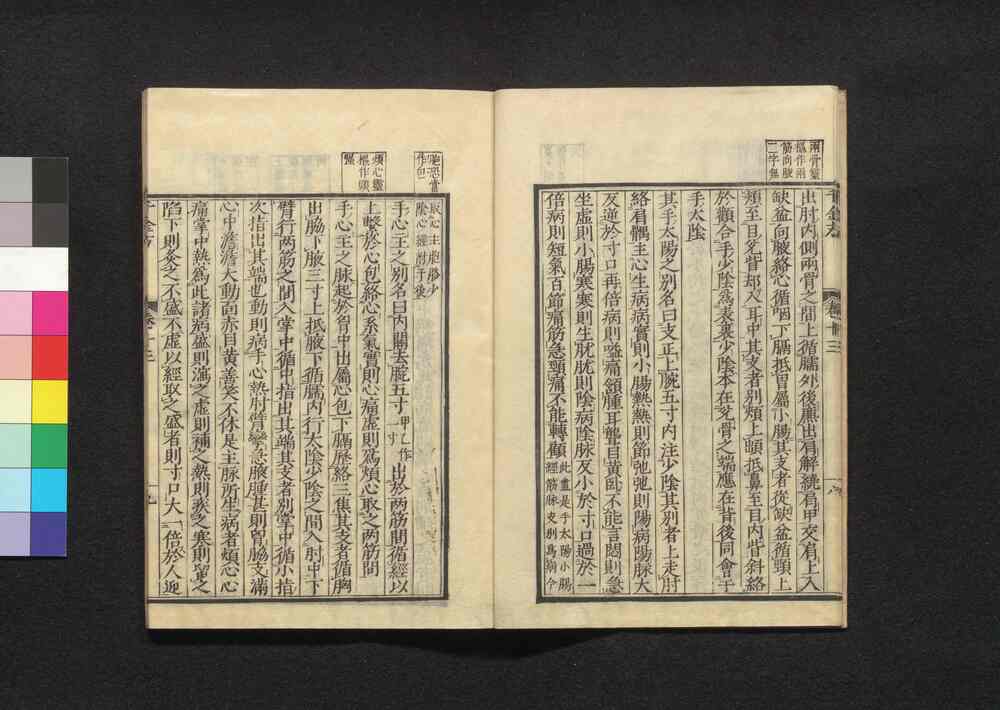 兩骨靈
樞作兩
筋向腋
二字無
出肘内側兩骨之間上循臑外後廉出肩解繞肩甲交肩上入
缺盆向腋絡心循咽下膈抵胃屬小腸其支者從缺盆循頸上
頰至目兊眥却入耳中其支者別頰上䪼抵鼻至目内眥斜絡
於顴合手少陰爲表裏少陰本在兊骨之端應在背後同會于
手太陰
其手太陽之別名曰支正上腕五寸内注少陰其別者上走肘
絡肩髃主心生病病實則小腸熱熱則節弛弛則陽病陽脉大
反逆於寸口再倍病則嗌痛頷腫耳聾目黄卧不能言悶則急
生虛則小腸寒寒則生肬肬則陰病陰脉反小於寸口過於一
倍病則短氣百節痛筋急頸痛不能轉顧此盡是手太陽小腸
經筋脉支別爲病今
取心主胞脉少
陰心經附于後
胞恐當
作包
煩心靈
樞作頭
強
手心主之別名曰内關去腕五寸一寸甲乙作出於两筋間循經以
上繫於心包絡心系氣實則心痛虛則爲煩心取之两筋間
手心主之脉起於胷中出屬心包下膈歴絡三焦其支者循胸
出脇下腋三寸上抵腋下循臑内行太陰少陰之間入肘中下
臂行两筋之間入掌中循中指出其端其支者別掌中循小指
次指出其端也動則病手心熱肘臂攣急腋腫甚則胷脇支滿
心中澹澹大動面赤目黄善笑不休是主脉所生病者煩心心
痛掌中熱爲此諸病盛則瀉之虛則補之熱則疾之寒則留之
陷下則灸之不盛不虛以經取之盛者則寸口大一倍於人迎